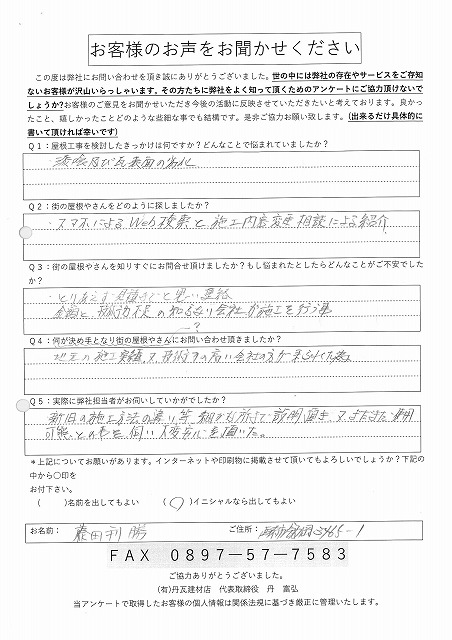 お客様のお声をお聞かせください
この度は弊社にお問い合わせを頂き誠にありがとうございました。世の中には弊社の存在やサービスをご存知
ないお客様が沢山いらっしゃいます。その方たちに弊社をよく知って頂くためのアンケートにご協力頂けないで
しょうか?お客様のご意見をお聞かせいただき今後の活動に反映させていただきたいと考えております。良かっ
たこと、嬉しかったことどのような些細な事でも結構です。是非ご協力お願い致します。(出来るだけ具体的に
書いて頂ければ幸いです)
Q1：屋根工事を検討したきっかけは何ですか？どんなことで悩まれていましたか？
・漆喰及び瓦表面の劣化
Q2：街の屋根やさんをどのように探しましたか？
・スマホによるWeb検索と施工内容変更相談による紹介
Q3：街の屋根やさんを知りすぐにお問合せ頂けましたか？もし悩まれたとしたらどんなことがご不安でした
か？
・とりあえず見積までと思い連絡
金額と、技術力不足の知らない会社が施工を行う事
?
Q4：何が決め手となり街の屋根やさんにお問い合わせ頂きましたか？
地元の施工実績、又、技術力の高い会社の方が来られた
Q5：実際に弊社担当者がお伺いしていかがでしたか？
新旧の施工方法の違い等、細かな所まで説明頂き、又、まだまだ
可能との事を伺い大変安心を頂いた。
＊上記についてお願いがあります。インターネットや印刷物に掲載させて頂いてもよろしいでしょうか？下記の
中から〇印を
お付下さい。
(　)名前を出してもよい　(〇)イニシャルなら出してもよい
お名前：　利勝　ご住所：　465-1
ＦＡＸ　０８９７－５７－７５８３
ご協力ありがとうございました。
(有)丹瓦建材店　代表取締役　丹　富弘
当アンケートで取得したお客様の個人情報は関係法規に基づき厳正に管理いたします。